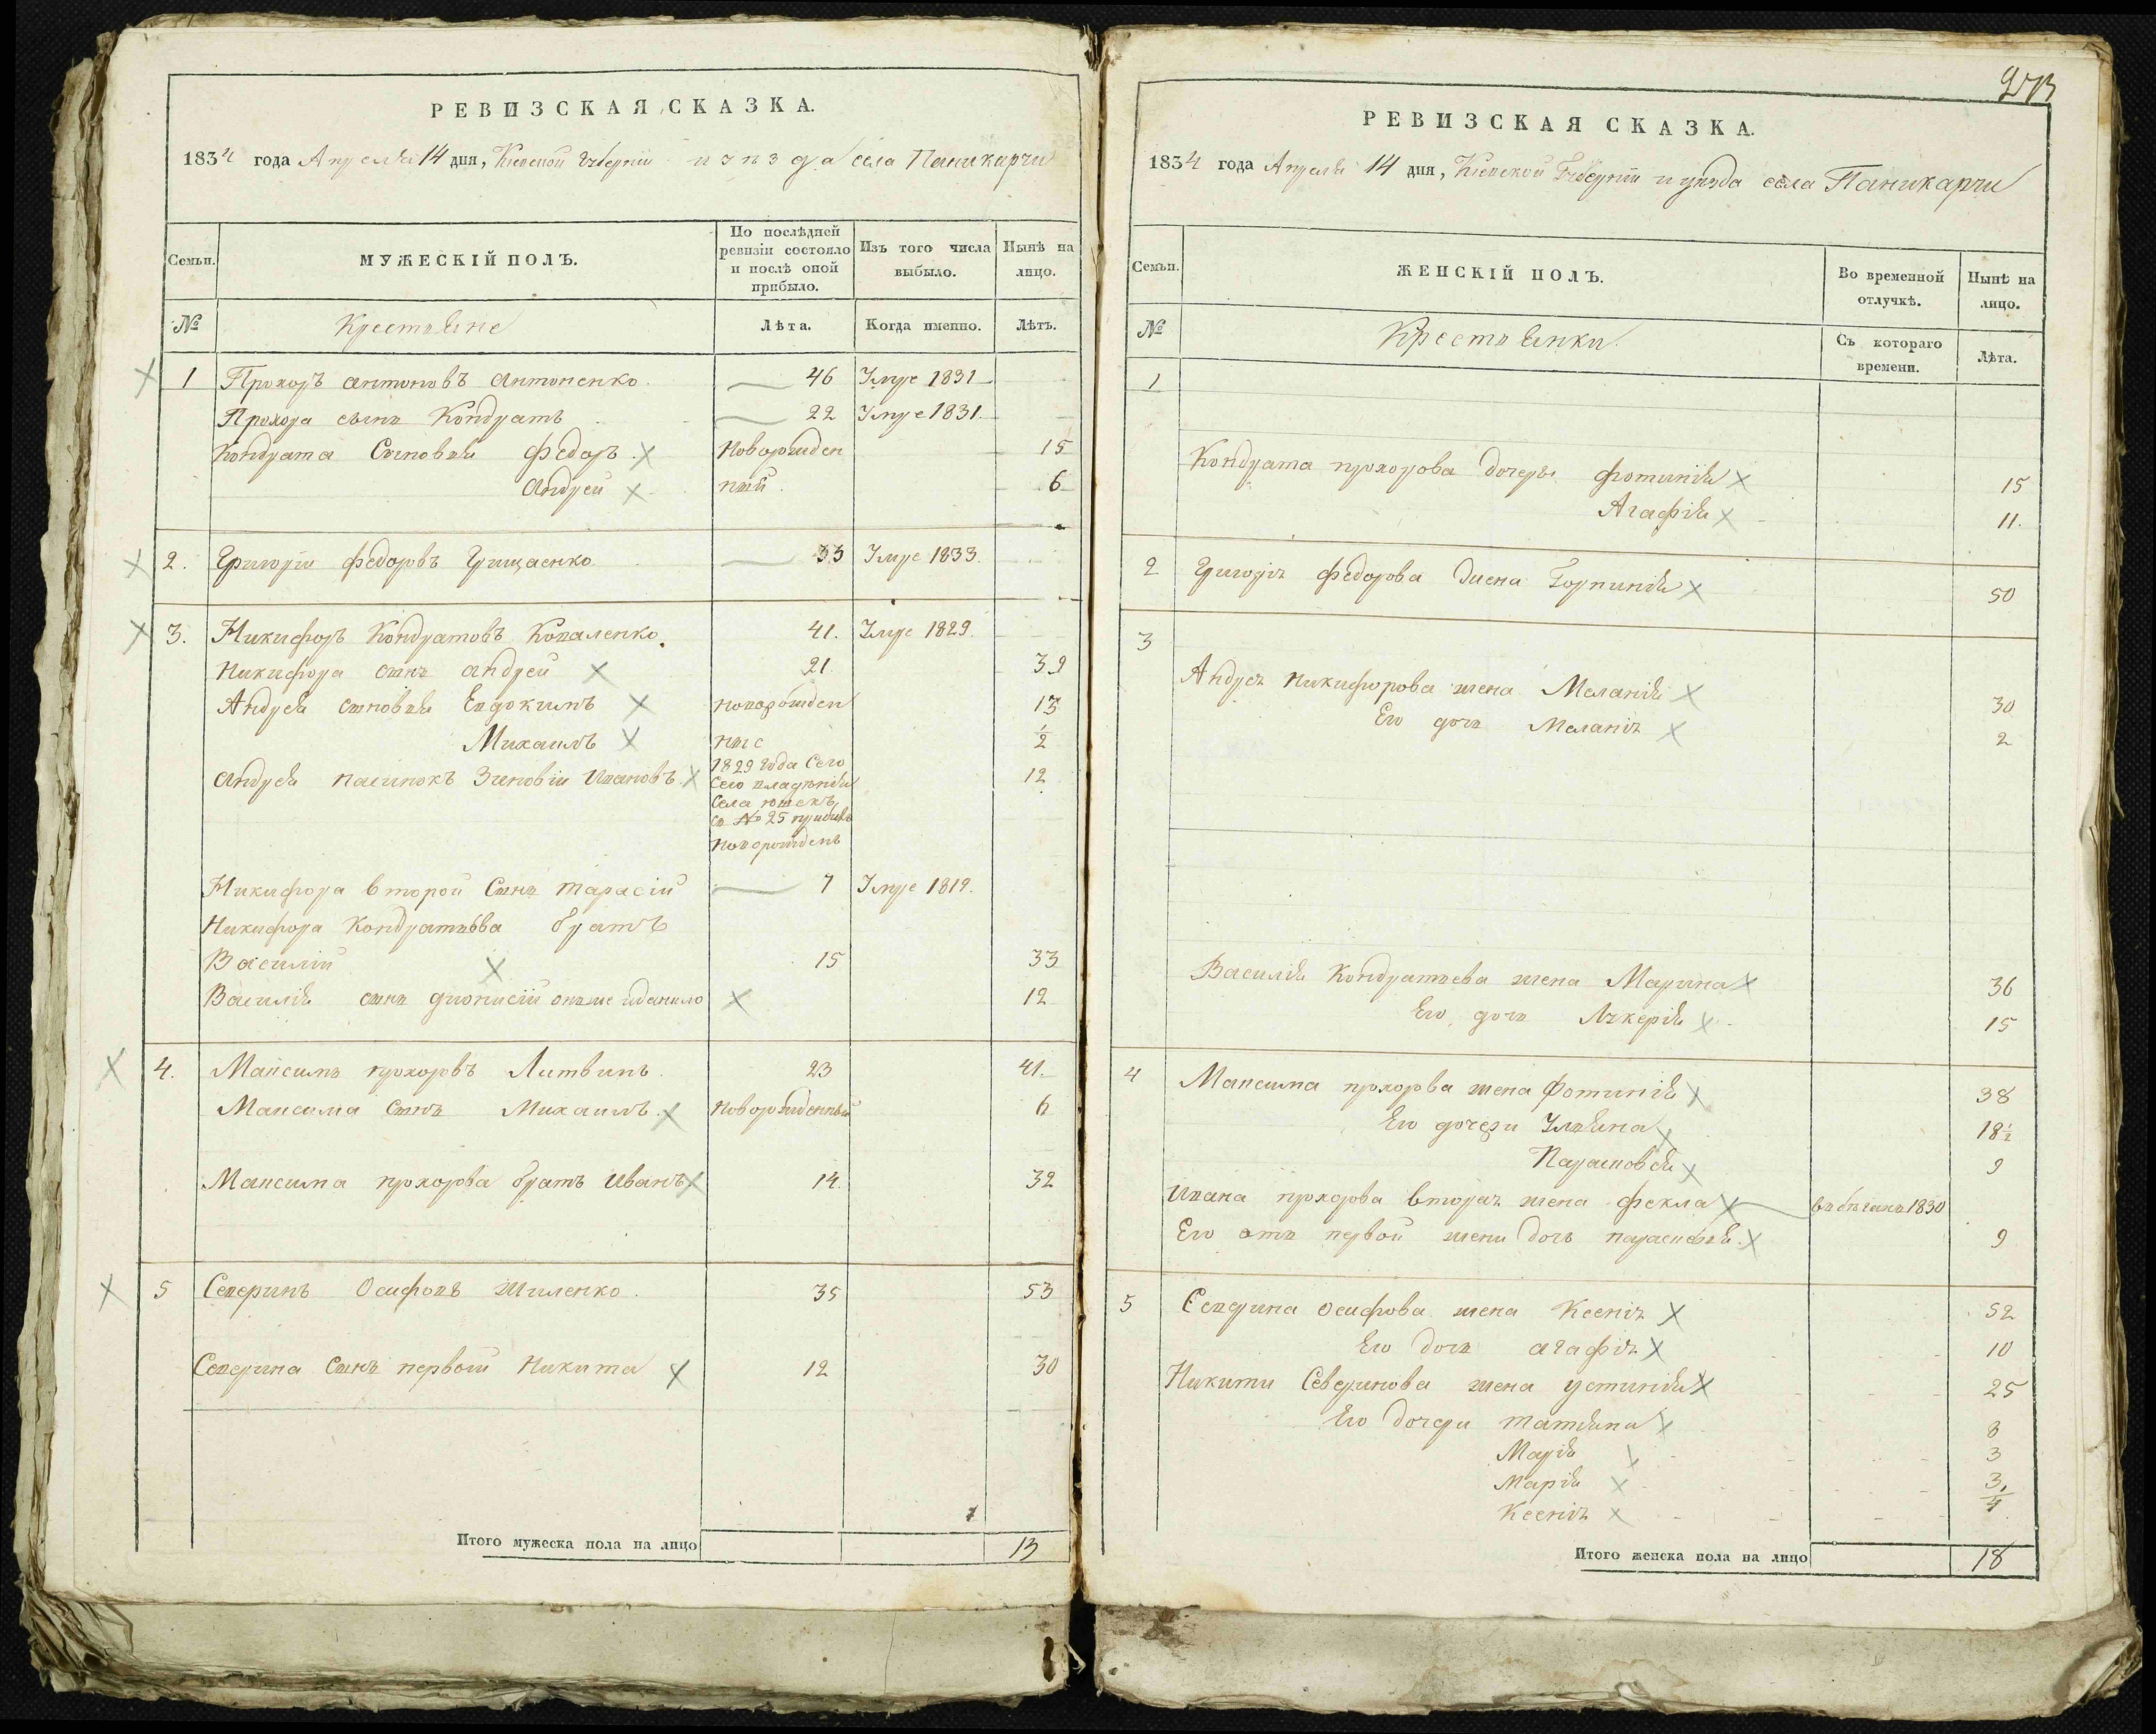 РЕВИЗСКАЯ СКАЗКА.
1834 года Апреля 14 дня, Киевской Губернии и уезда села Паникарчи
Семьи. МУЖЕСКІЙ ПОЛЪ. По послѣдней ревизіи состояло и послѣ оной прибыло. Изъ того числа выбыло. Нынѣ на лицо.
№ Крестьяне Лѣта. Когда именно. Лѣтъ.
1 Прохоръ антоновъ антоненко 46 Умре 1831
Прохора сынъ Кондратъ 22 Умре 1831.
Кондрата Сыновья Федоръ новорожден 15
андрей ный 6
2. Григорій федоровъ Грищаенко 33 Умре 1833.
3. Никифоръ Кондратовъ Коваленко 41. Умре 1829.
Никифора сынъ андрей 21. 39
Андрея сыновья Евдокимъ новорожден 13
Михаилъ ные 1/2
андрея пасинокъ Зиновій Ивановъ 1829 года Сего 12
Сего владѣнія
Села
съ № 25 прибылъ
новорожденъ
Никифора второй Сынъ тарасій 7 Умре 1819.
Никифора Кондратьева братъ
Василій 15 33
Василія сынъ дионисій онъже иданило 12
4. Максимъ прохоровъ Литвинъ. 23 41.
Максима Сынъ Михаилъ новорожденный 6
Максима прохорова братъ иванъ 14. 32
5 Северинъ Осифовъ Шиленко. 35 53
Северина Сынъ первый Никита 12 30
Итого мужеска пола на лицо 13
РЕВИЗСКАЯ СКАЗКА.
1834 года Апреля 14 дня, Киевской Губерніи и уезда села Паникарчи
Семьи. ЖЕНСКІЙ ПОЛЪ. Во временной отлучкѣ. Нынѣ на лицо.
№ Крестьянки Съ котораго времени. Лѣта.
1
Кондрата прохорова дочеры фотинія 15
Агафія 11.
2 Григорія федорова жена Горпинія 50
3
Андрея никифорова жена Меланія 30
Его дочь Меланія 2
Василія Кондратьева жена Марина 36
Его дочь Лукерія 15
4 Максима прохорова жена Фотинія 38
Его дочери Ульяна 18 1/2
Парасковія 9
Ивана прохорова вторая жена фекла въ бѣгахъ 1830
Его отъ первой жени дочь параскевия 9
5 Северина осифова жена Ксенія 52
Его дочь агафія 10
Никити Северинова жена устинія 25
Его дочери татияна 8
Марія 3
Марія 3.
Ксенія 1/4
Итого женска пола на лицо 18